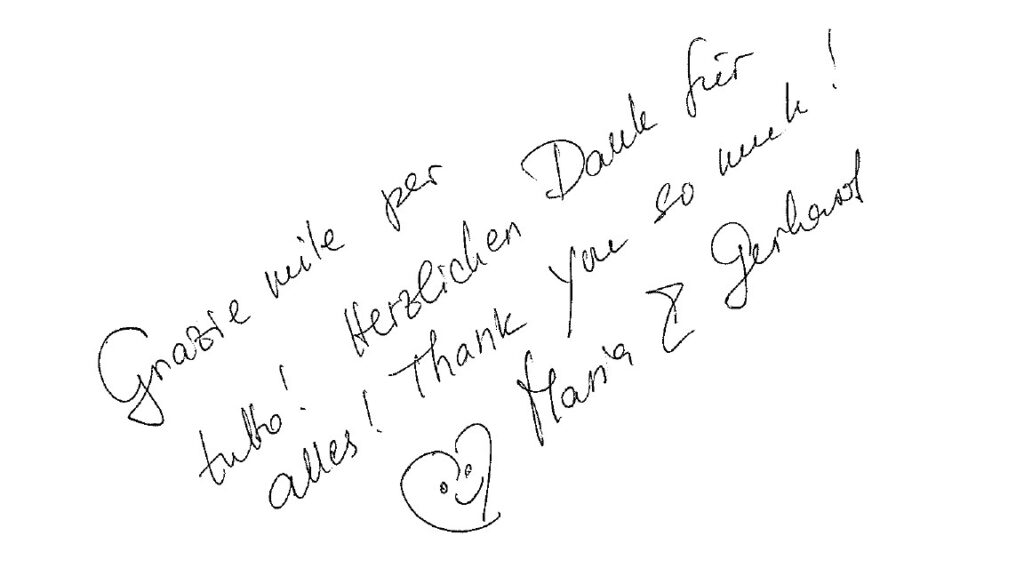 Grazie mile per
tutto! Herzlichen Dank für
alles! Thank you so much!
Maria & Gerhard